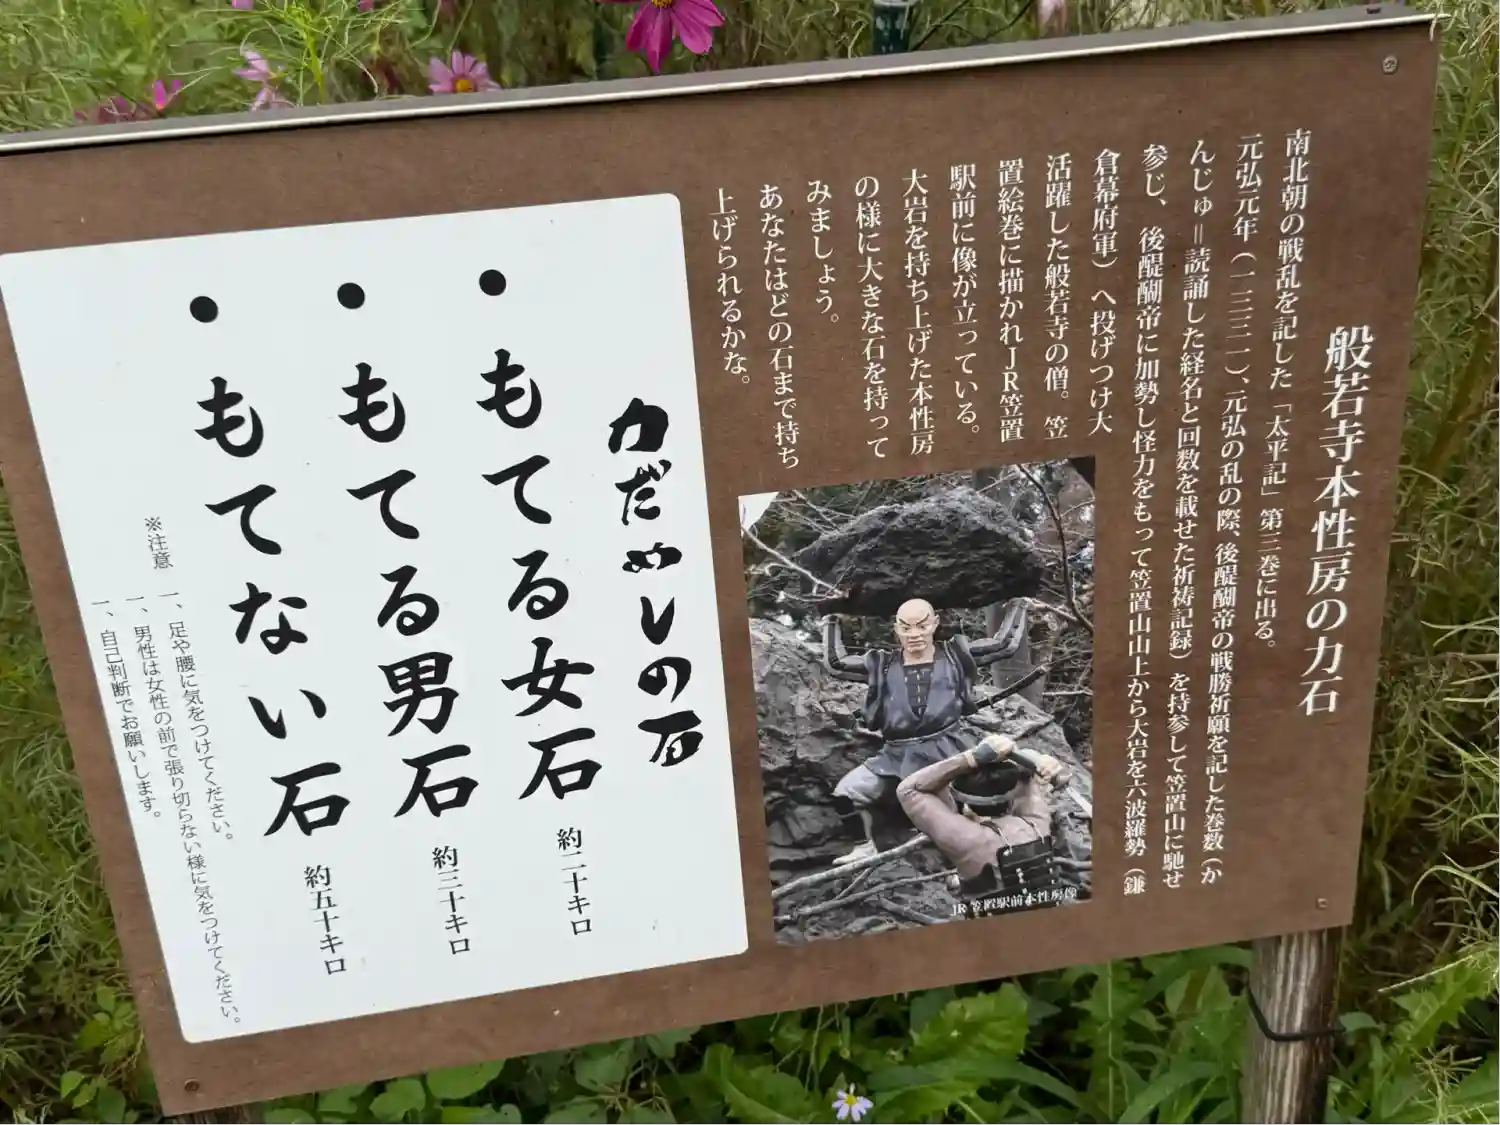 般若寺本性房の力石
南北朝の戦乱を記した「太平記」第三巻に出る。
元弘元年（一三三一）、元弘の乱の際、後醍醐帝の戦勝祈願を記した巻数（か
んじゅ＝読誦した経名と回数を載せた祈祷記録）を持参して笠置山に馳せ
参じ、後醍醐帝に加勢し怪力をもって笠置山山上から大岩を六波羅勢（鎌
倉幕府軍）へ投げつけ大
活躍した般若寺の僧。笠
置絵巻に描かれJR笠置
駅前に像が立っている。
大岩を持ち上げた本性房
の様に大きな石を持って
みましょう。
あなたはどの石まで持ち
上げられるかな。
JR笠置駅前本性房像
力だめしの石
●もてる女石 約二十キロ
●もてる男石 約三十キロ
●もてない石 約五十キロ
※注意 一、足や腰に気をつけてください。
一、男性は女性の前で張り切らない様に気をつけてください。
一、自己判断でお願いします。